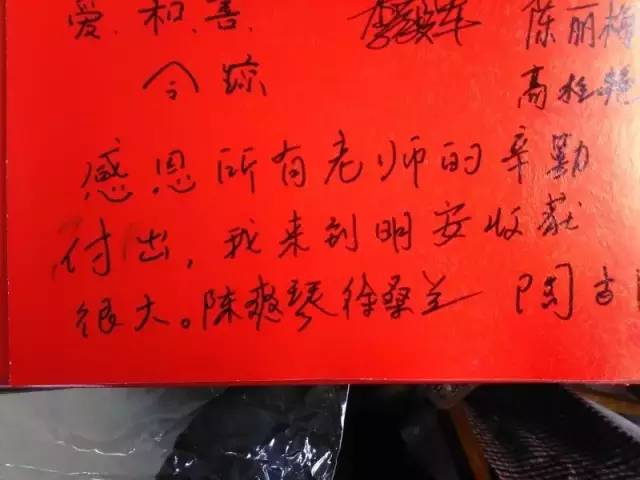 爱.和.善. 李毅军 陈丽梅
令琼 高桂艳
感恩所有老师的辛勤
付出,我来到明安收获
很大。陈爽琴 徐桑兰 陶吉